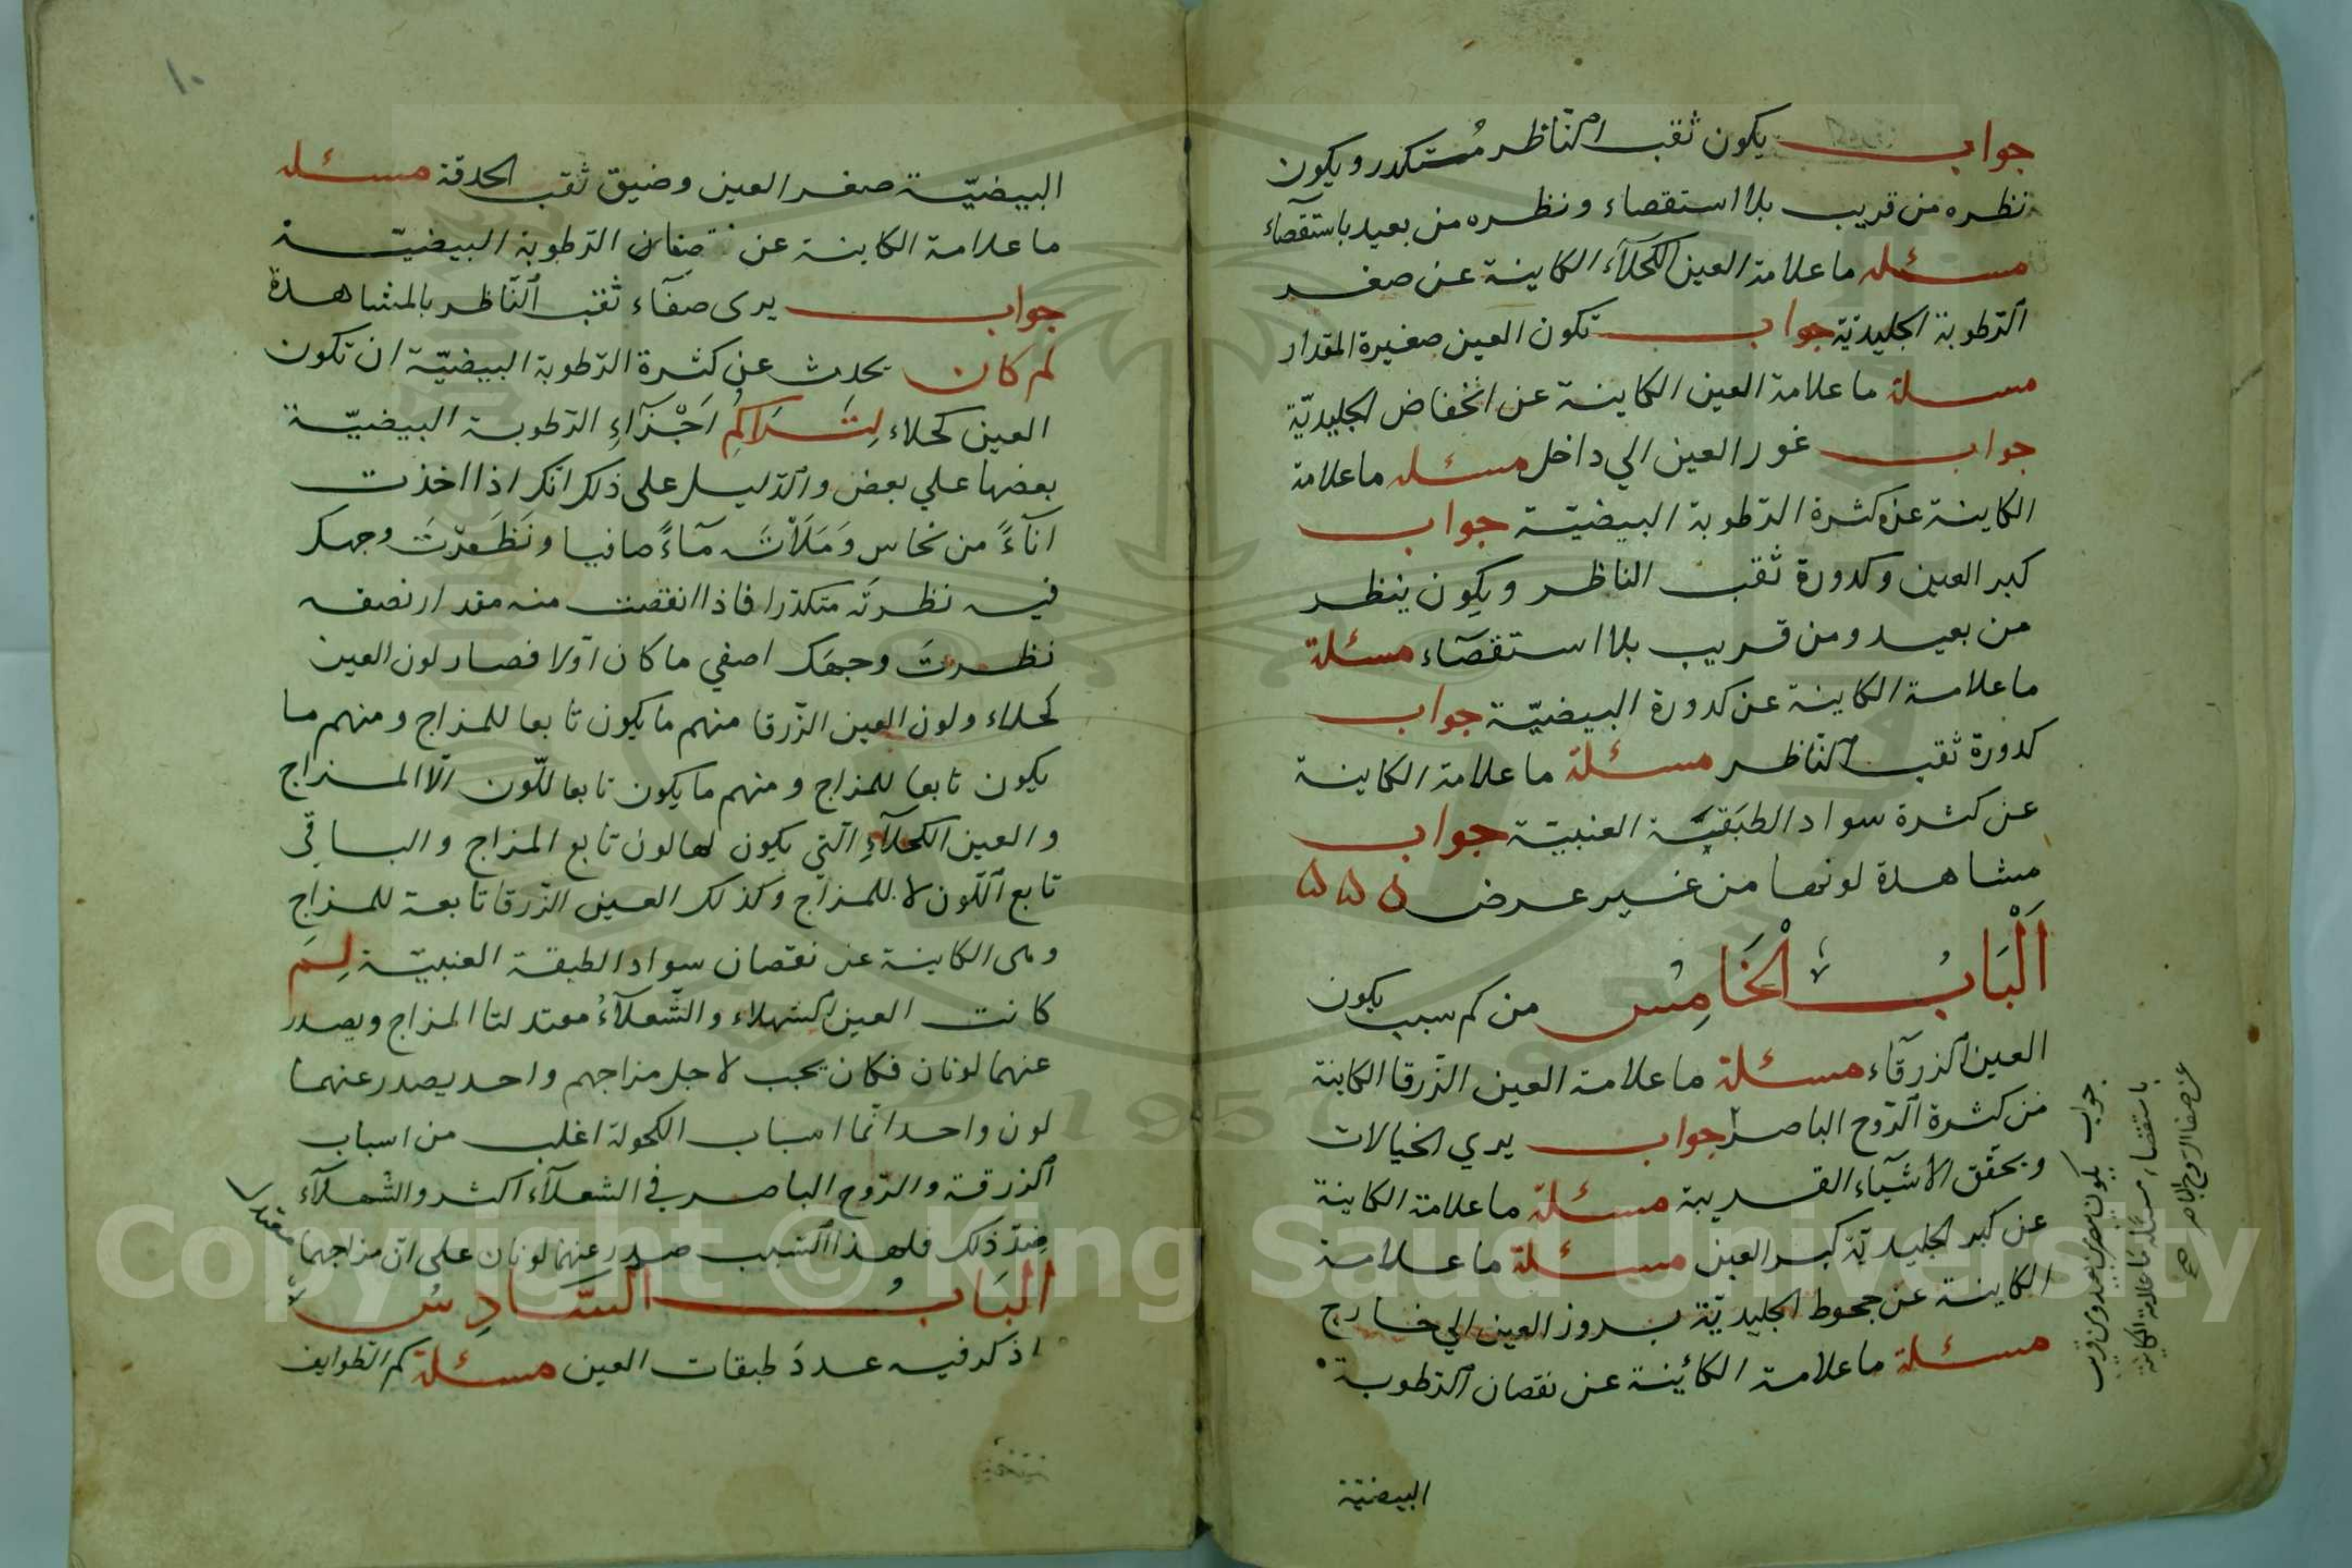 جواب يكون ثقب الناظر مستكدر ويكون
نظره من قريب بلا استقصاء ونظره من بعيد باستقصآء
مسئله ما علامة العين الكحلآء الكاينة عن صغر
الرطوبة الجليديّة جواب تكون العين صغيرة المقدار
مسئلة ما علامة العين الكاينة عن انخفاض الجليديّة
جواب غور العين الي داخل مسئله ما علامة
الكاينة عن كثرة الرّطوبة البيضيّة جواب
كبر العين وكدورة ثقب الناظر ويكون ينظر
من بعيد ومن قريب بلا استقصآء مسئلة
ما علامة الكاينة عن كدورة البيضيّة جواب
كدورة ثقب النّاظر مسئلة ما علامة الكاينة
عن كثرة سواد الطبقيّة العنبيّة جواب
مشاهدة لونها من غير عرض ۵ ۵ ۵
اَلْبَابُ الْخَامِسُ من كم سبب يكون
العين الزرقآء مسئلة ما علامة العين الزّرقا الكاينة
من كثرة الرّوح الباصر جواب يري الخيالات
ويحقّق الأشيآء القريبة مسئلة ما علامة الكاينة
عن كبر الجليديّة كبر العين مسئلة ما علامة
الكاينة عن جحوظ الجليديّة بروز العين الي خارج
مسئلة ما علامة الكائينة عن نقصان الرّطوبة
البيضيّة
جواب يكون يبصر من بعيد ومن قريب
باستقصاء مسئلة ما علامة الكاينة
عن صفا الروح الباصر صح
١٠
البيضيّة صغر العين وضيق ثقب الحدقة مسئله
ما علامة الكاينة عن الرّطوبة البيضيّة
جواب يرى صفآء ثقب النّاظر بالمشاهدة
لم كان يحدث عن كثرة الرّطوبة البيضيّة ان تكون
العين كحلاء لِتَرَاكُمِ اَجْزَآءِ الرّطوبة البيضيّة
بعضها علي بعض والدّليل على ذلك انّك اذا اخذت
انآءً من نحاس وَمَلَأْتَه مآءً صافيا ونَظَرْتَ وجهك
فيه نظرتَه متكدّرا فاذا انقصت منه مقدار نصفه
نظرتَ وجهَك اصفي ما كان اوّلا فصار لون العين
كحلاء ولون العين الزّرقا منهم ما يكون تابعا للمزاج ومنهم ما
يكون تابعا للمزاج ومنهم ما يكون تابعا للّون الّا المزاج
والعين الكحلآءِ الّتي يكون لها لون تابع المزاج والباقي
تابع اللّون لا للمزاج وكذلك العين الزّرقا تابعة للمزاج
وهى الكاينة عن نقصان سواد الطبقة العنبيّة لِمَ
كانت العين الشهلاء والشّعلآءُ معتدلتا المزاج ويصدر
عنهما لونان فكان يجب لاجل مزاجهم واحد يصدر عنهما
لون واحد انّما اسباب الكحولة اغلب من اسباب
الزرقة والرّوح الباصر في الشعلآء اكثر والشّهلآء
ضِدّ ذلك فلهذا السّبب صدر عنهما لونان على انّ مزاجهما
معتدلا
البَابُ السَّادِسُ
اذكر فيه عددَ طبقات العين مسئلة كم الطوايف